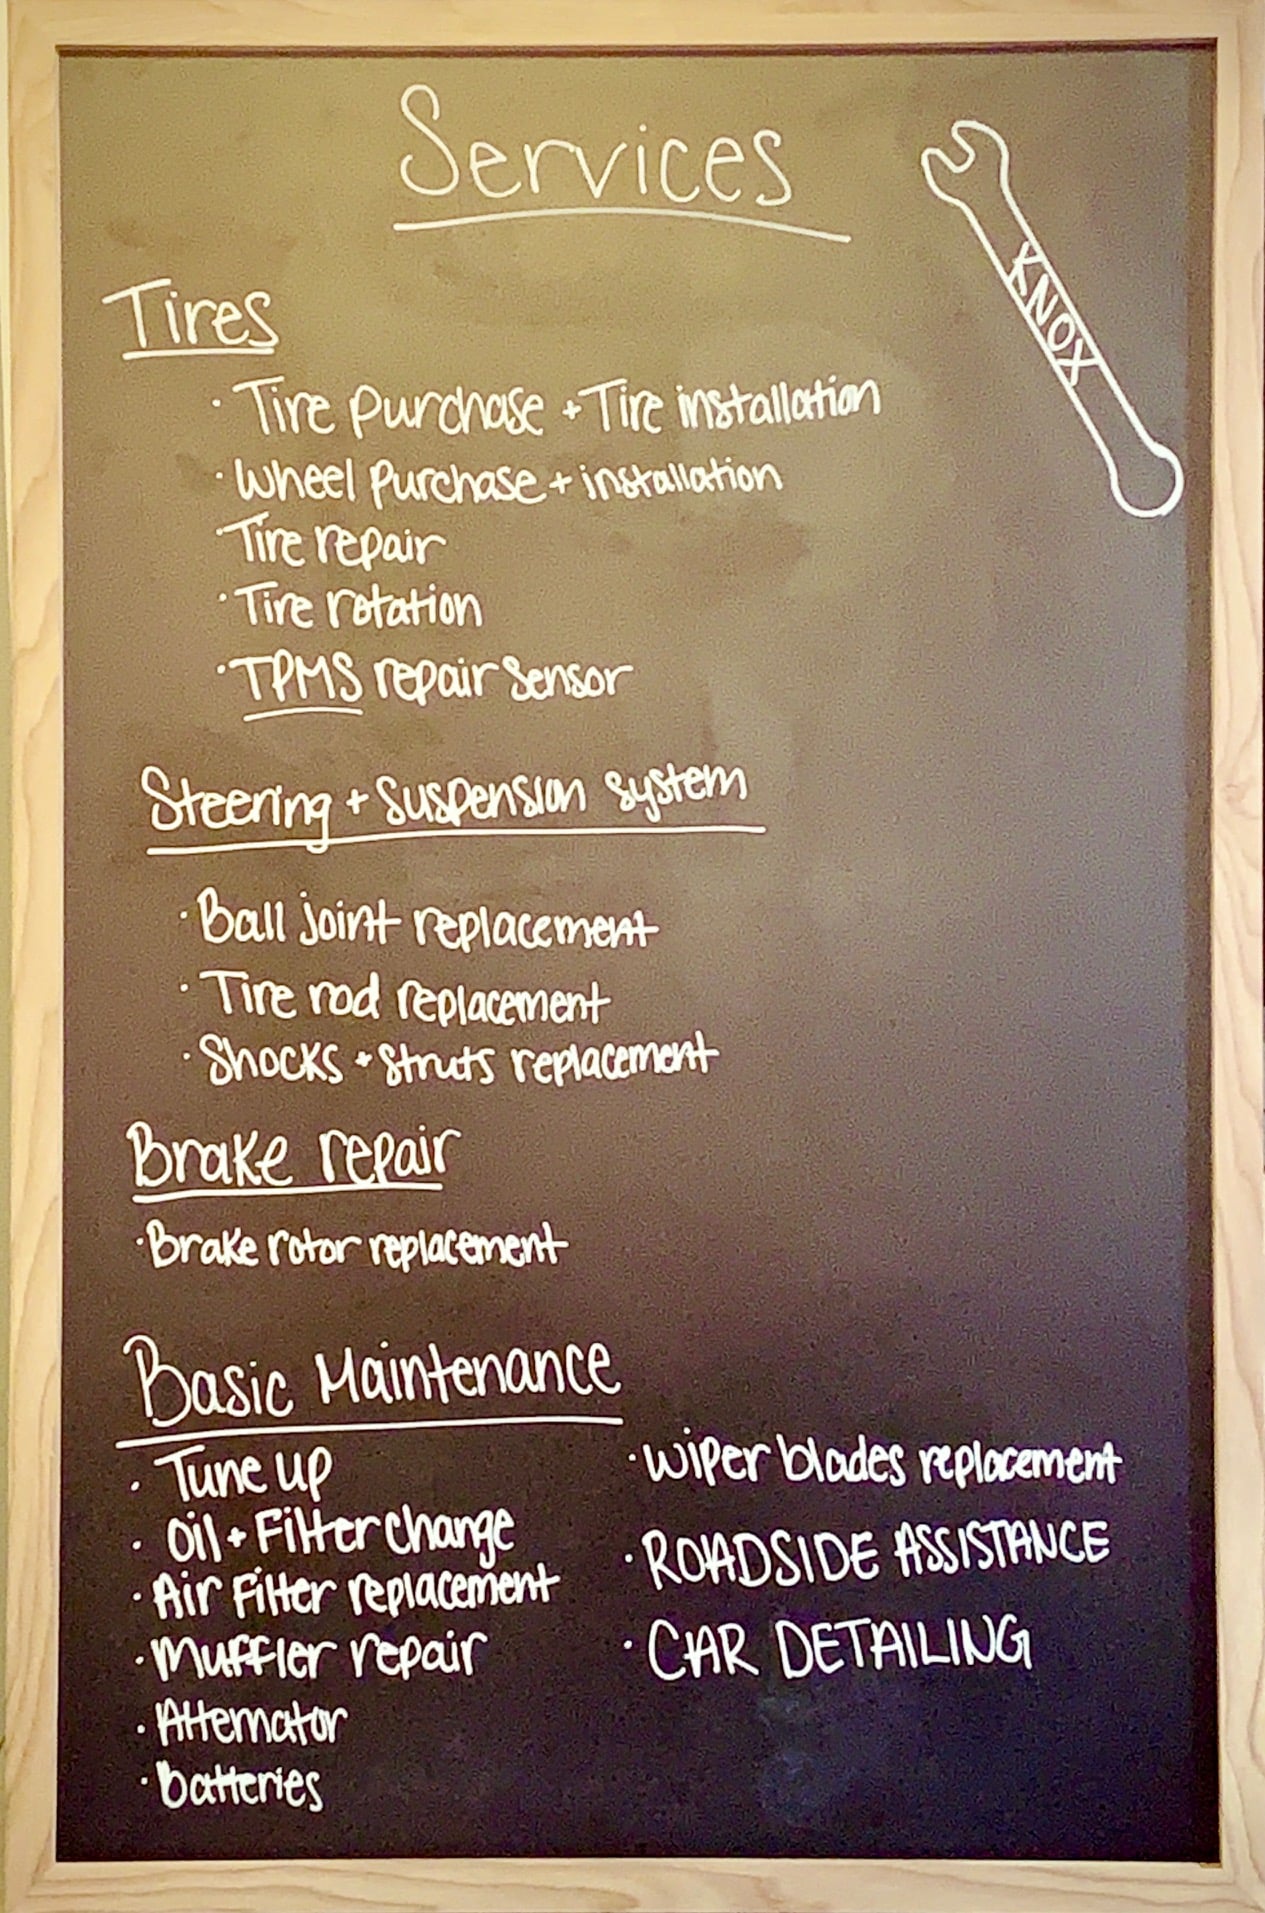 Services
KNOX
Tires
· Tire purchase + Tire installation
· Wheel purchase + installation
· Tire repair
· Tire rotation
· TPMS repair sensor
Steering + suspension system
· Ball joint replacement
· Tire rod replacement
· Shocks + struts replacement
Brake repair
· Brake rotor replacement
Basic Maintenance
· Tune up
· Oil + Filter change
· Air Filter replacement
· Muffler repair
· Alternator
· batteries
· wiper blades replacement
· ROADSIDE ASSISTANCE
· CAR DETAILING